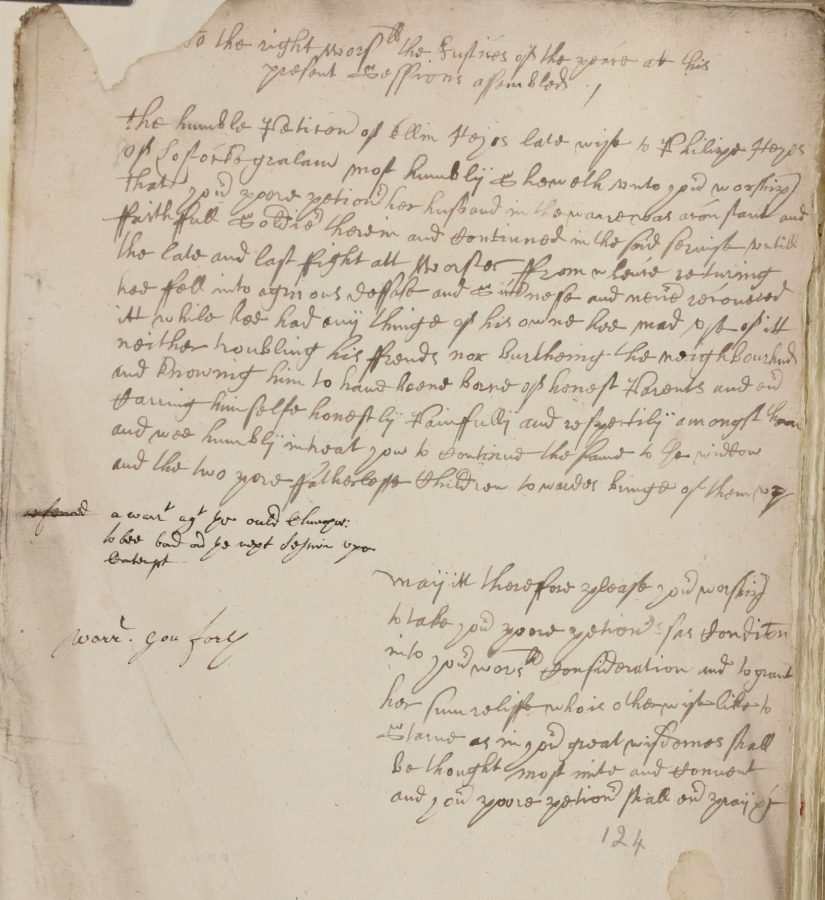 To the right Worsll the Justices of the peace at this
present Sessions assembled /
the humble Peticon of Ellin Heyes late wife to Philipe Heyes
of Lostocke gralam most humbly Sheweth vnto your worships
that your poore petioner her husband in the warre was a constant and
ffaithffull Soldier therein and Continued in the said servise vntill
the late and last ffight att Worster ffrom whence returing
hee fell into a grivous deffase and Sicknesse and never recouered
itt while hee had any thinge of his owne hee mad vse of itt
neither troubling his ffrends nor burtheing the neighbourhud
and knowing him to haue beene borne of honest Parents and ever
Carring himselfe honestly Painffully and respectily amongst them
and wee humbly intreat you to Continue the same to the widdow
and the two pore ffatherlesse Children towardes bringe of them vp
a warrt agt the ould
to bee bound ad the next Session vpo
Contempt
warrt. gon forth
May itt thereffore please your worships
to take your poore petioners sad Condition
into your worsll Consideration and to grant
her sum reliffe who is otherwise like to
Starue as in your great wisdomes shall
be thought most mite and Convent
and your poore petioner shall ever pray &c
124